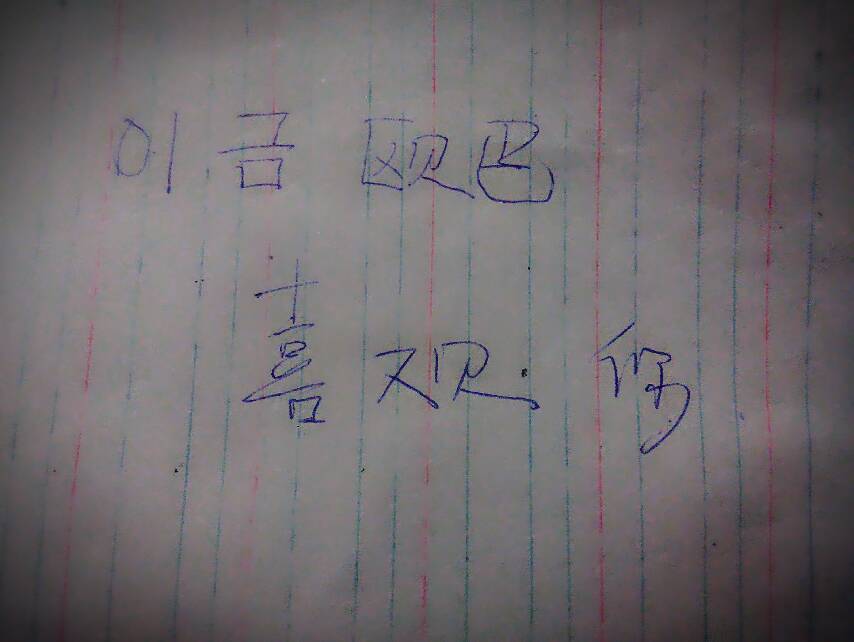 이금 欧巴
喜欢 你